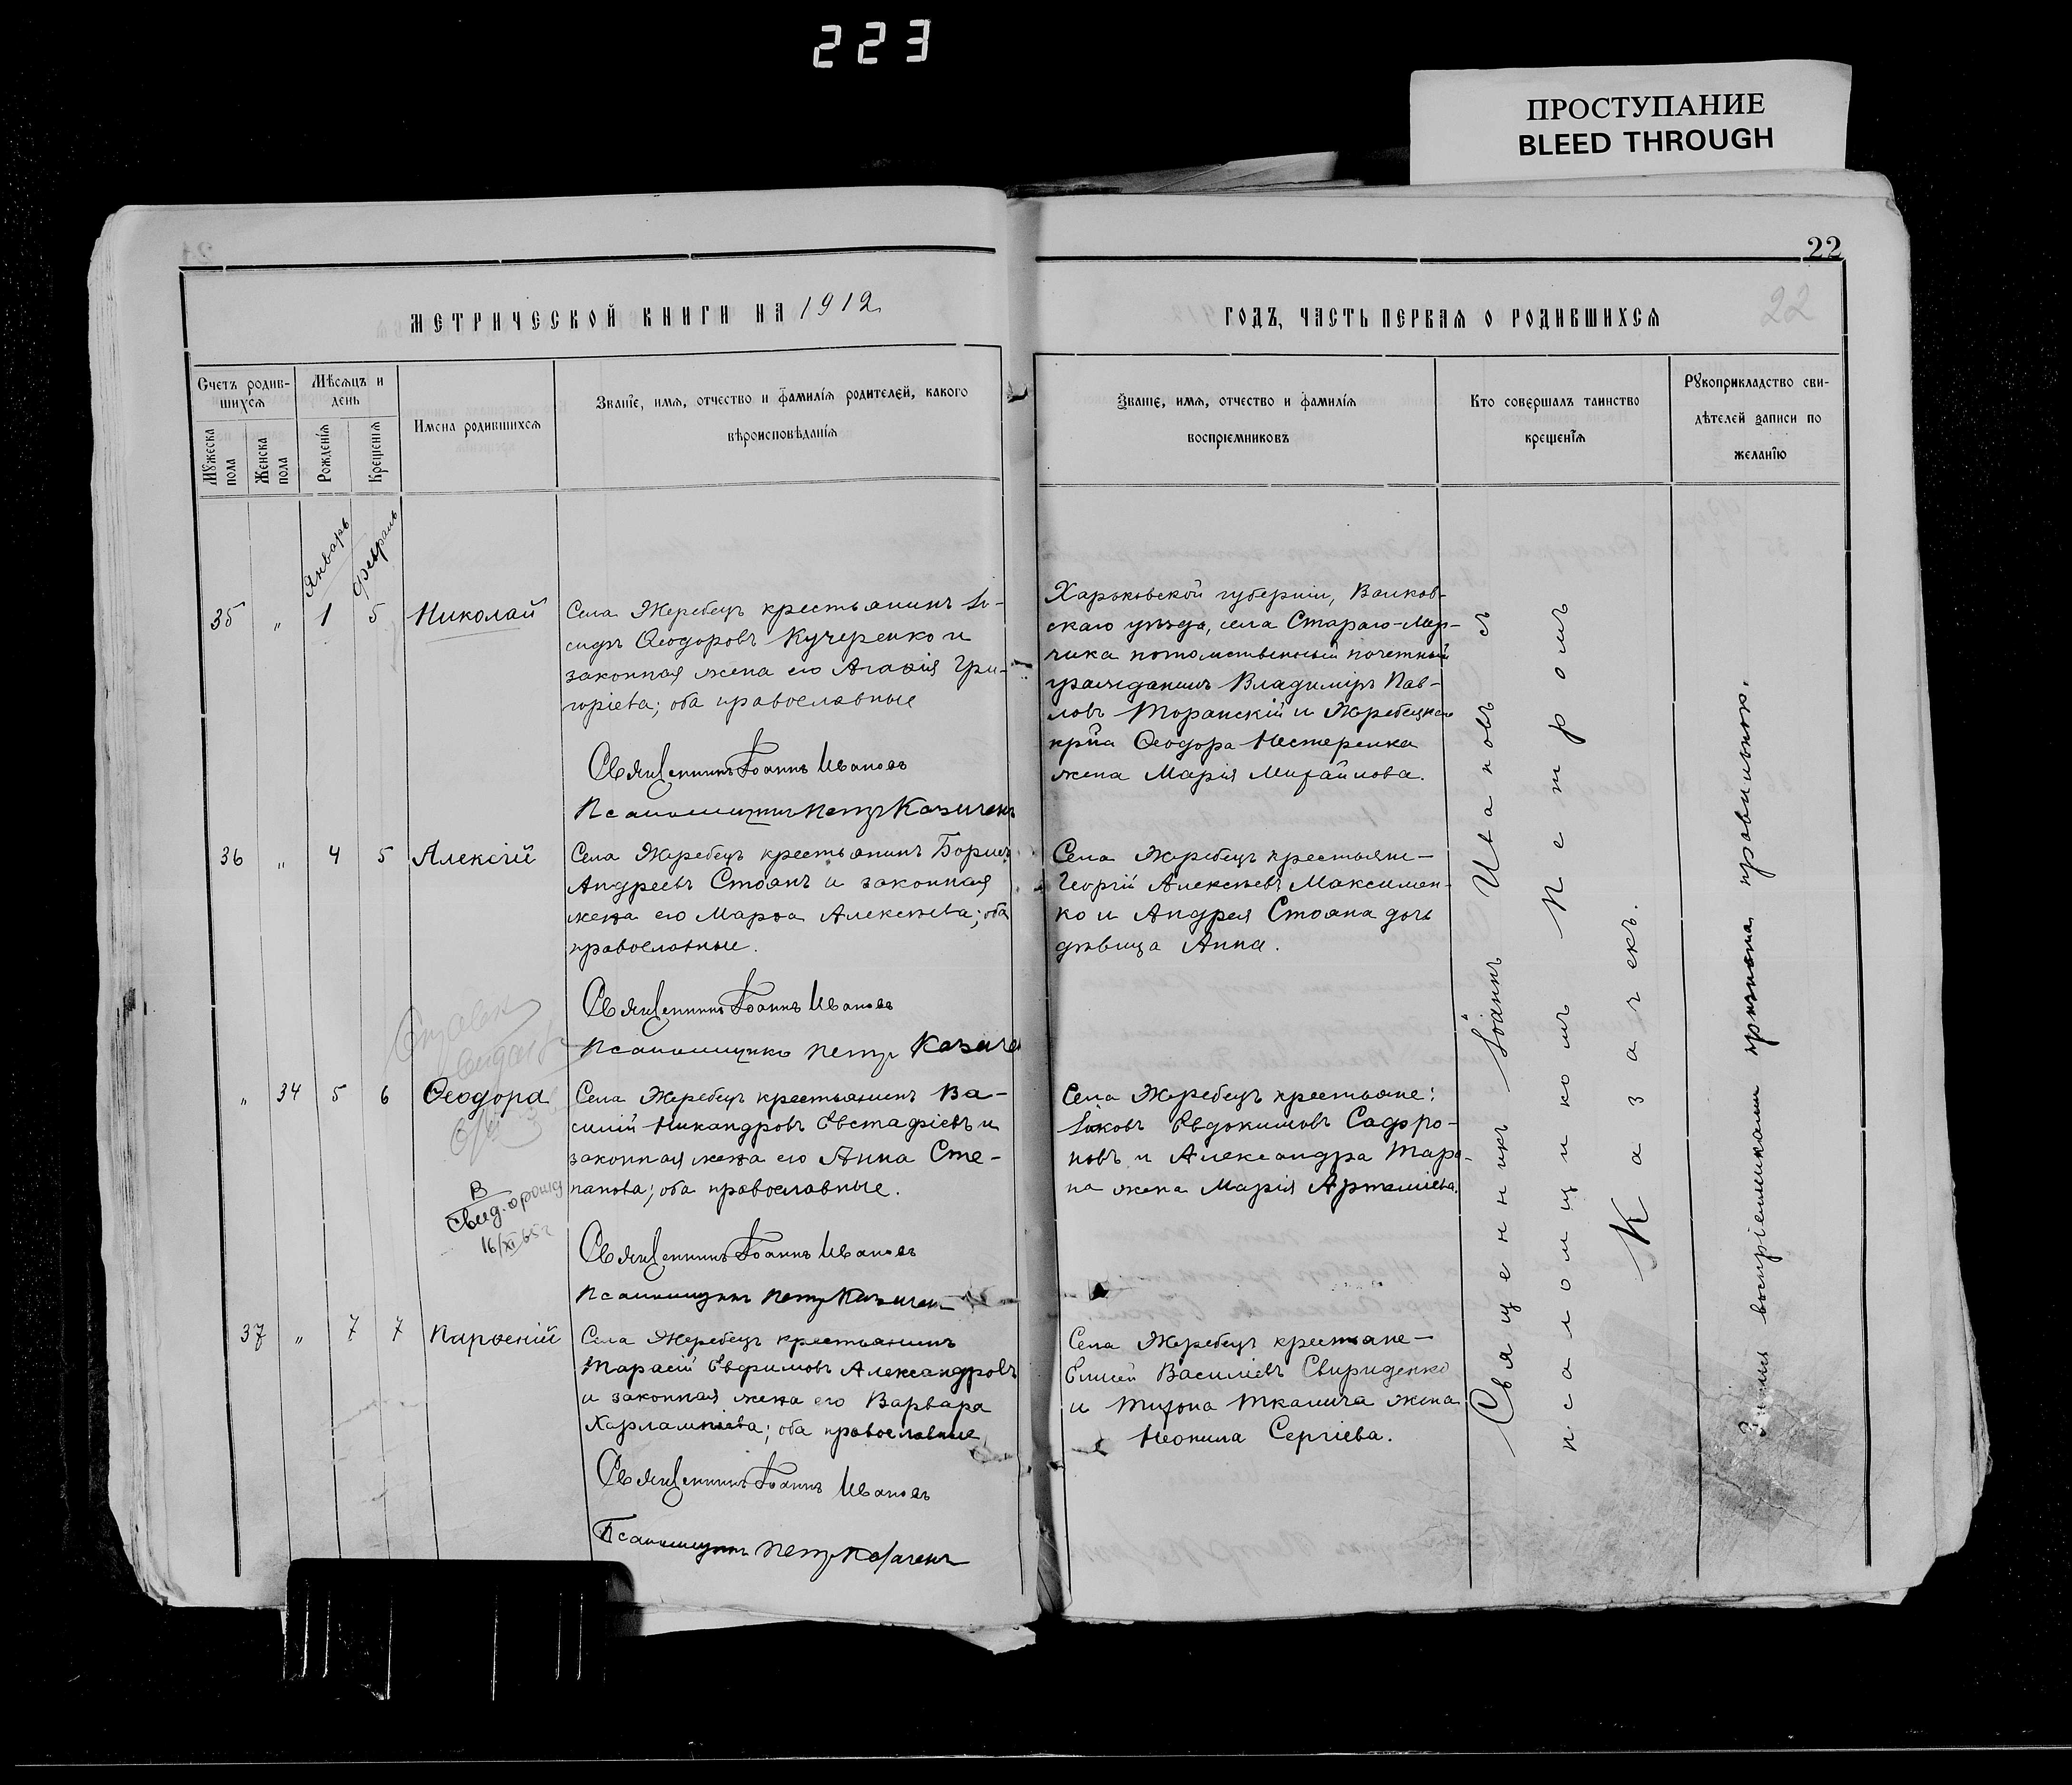 223
ПРОСТУПАНИЕ
BLEED THROUGH
22
22
МЕТРИЧЕСКОЙ КНИГИ НА 1912
ГОДЪ, ЧАСТЬ ПЕРВАЯ О РОДИВШИХСЯ
Счетъ родив-
шихся
Мѣсяцъ и
день
Имена родившихся
Званіе, имя, отчество и фамилія родителей, какого
вѣроисповѣданія
Званіе, имя, отчество и фамилія
воспріемниковъ
Кто совершалъ таинство
крещенія
Рукоприкладство сви-
дѣтелей записи по
желанію
Мужеска
пола
Женска
пола
Рожденія
Крещенія
Январь
Февраль
35 " 1 5 Николай
Села Жеребецъ крестьянинъ Іо-
сифъ Ѳеодоровъ Кучеренко и
законная жена его Агаѳія Гри-
горіева; оба православные
Священникъ Іоаннъ Ивановъ
Псаломщикъ Петръ Казачекъ
Харьковской губерніи, Валков-
скаго уѣзда, села Стараго-Мер-
чика потомственный почетный
гражданинъ Владиміръ Пав-
ловъ Торанскій и Жеребецкаго
кр-на Ѳеодора Нестеренка
жена Марія Михайлова.
36 " 4 5 Алексій
Села Жеребецъ крестьянинъ Борисъ
Андреевъ Стоянъ и законная
жена его Марѳа Алексѣева; оба
православные.
Священникъ Іоаннъ Ивановъ
Псаломщикъ Петръ Казаче
Села Жеребецъ крестьяне—
Георгій Алексѣевъ Максимен-
ко и Андрея Стояна дочь
дѣвица Анна.
" 34 5 6 Ѳеодора
В
Свид. о рожд
16/XI 65 г
Села Жеребецъ крестьянинъ Ва-
силій Никандровъ Евстафіевъ и
законная жена его Анна Сте-
панова; оба православные.
Священникъ Іоаннъ Ивановъ
Псаломщикъ Петръ Казачекъ
Села Жеребецъ крестьяне:
Іаковъ Евдокимовъ Сафро-
новъ и Александра Тара-
на жена Марія Артеміева.
37 " 7 7 Парѳеній
Села Жеребецъ крестьянинъ
Тарасій Евфимовъ Александровъ
и законная жена его Варвара
Харлампіева; оба православные
Священникъ Іоаннъ Ивановъ
Псаломщикъ Петръ Казачекъ
Села Жеребецъ крестьяне—
Елисей Василіевъ Свириденко
и Тихона Ткалича жена
Неонила Сергіева.
Священникъ Іоаннъ Ивановъ съ
псаломщикомъ Петромъ
Казачекъ.
воспріемниками признана правильною.